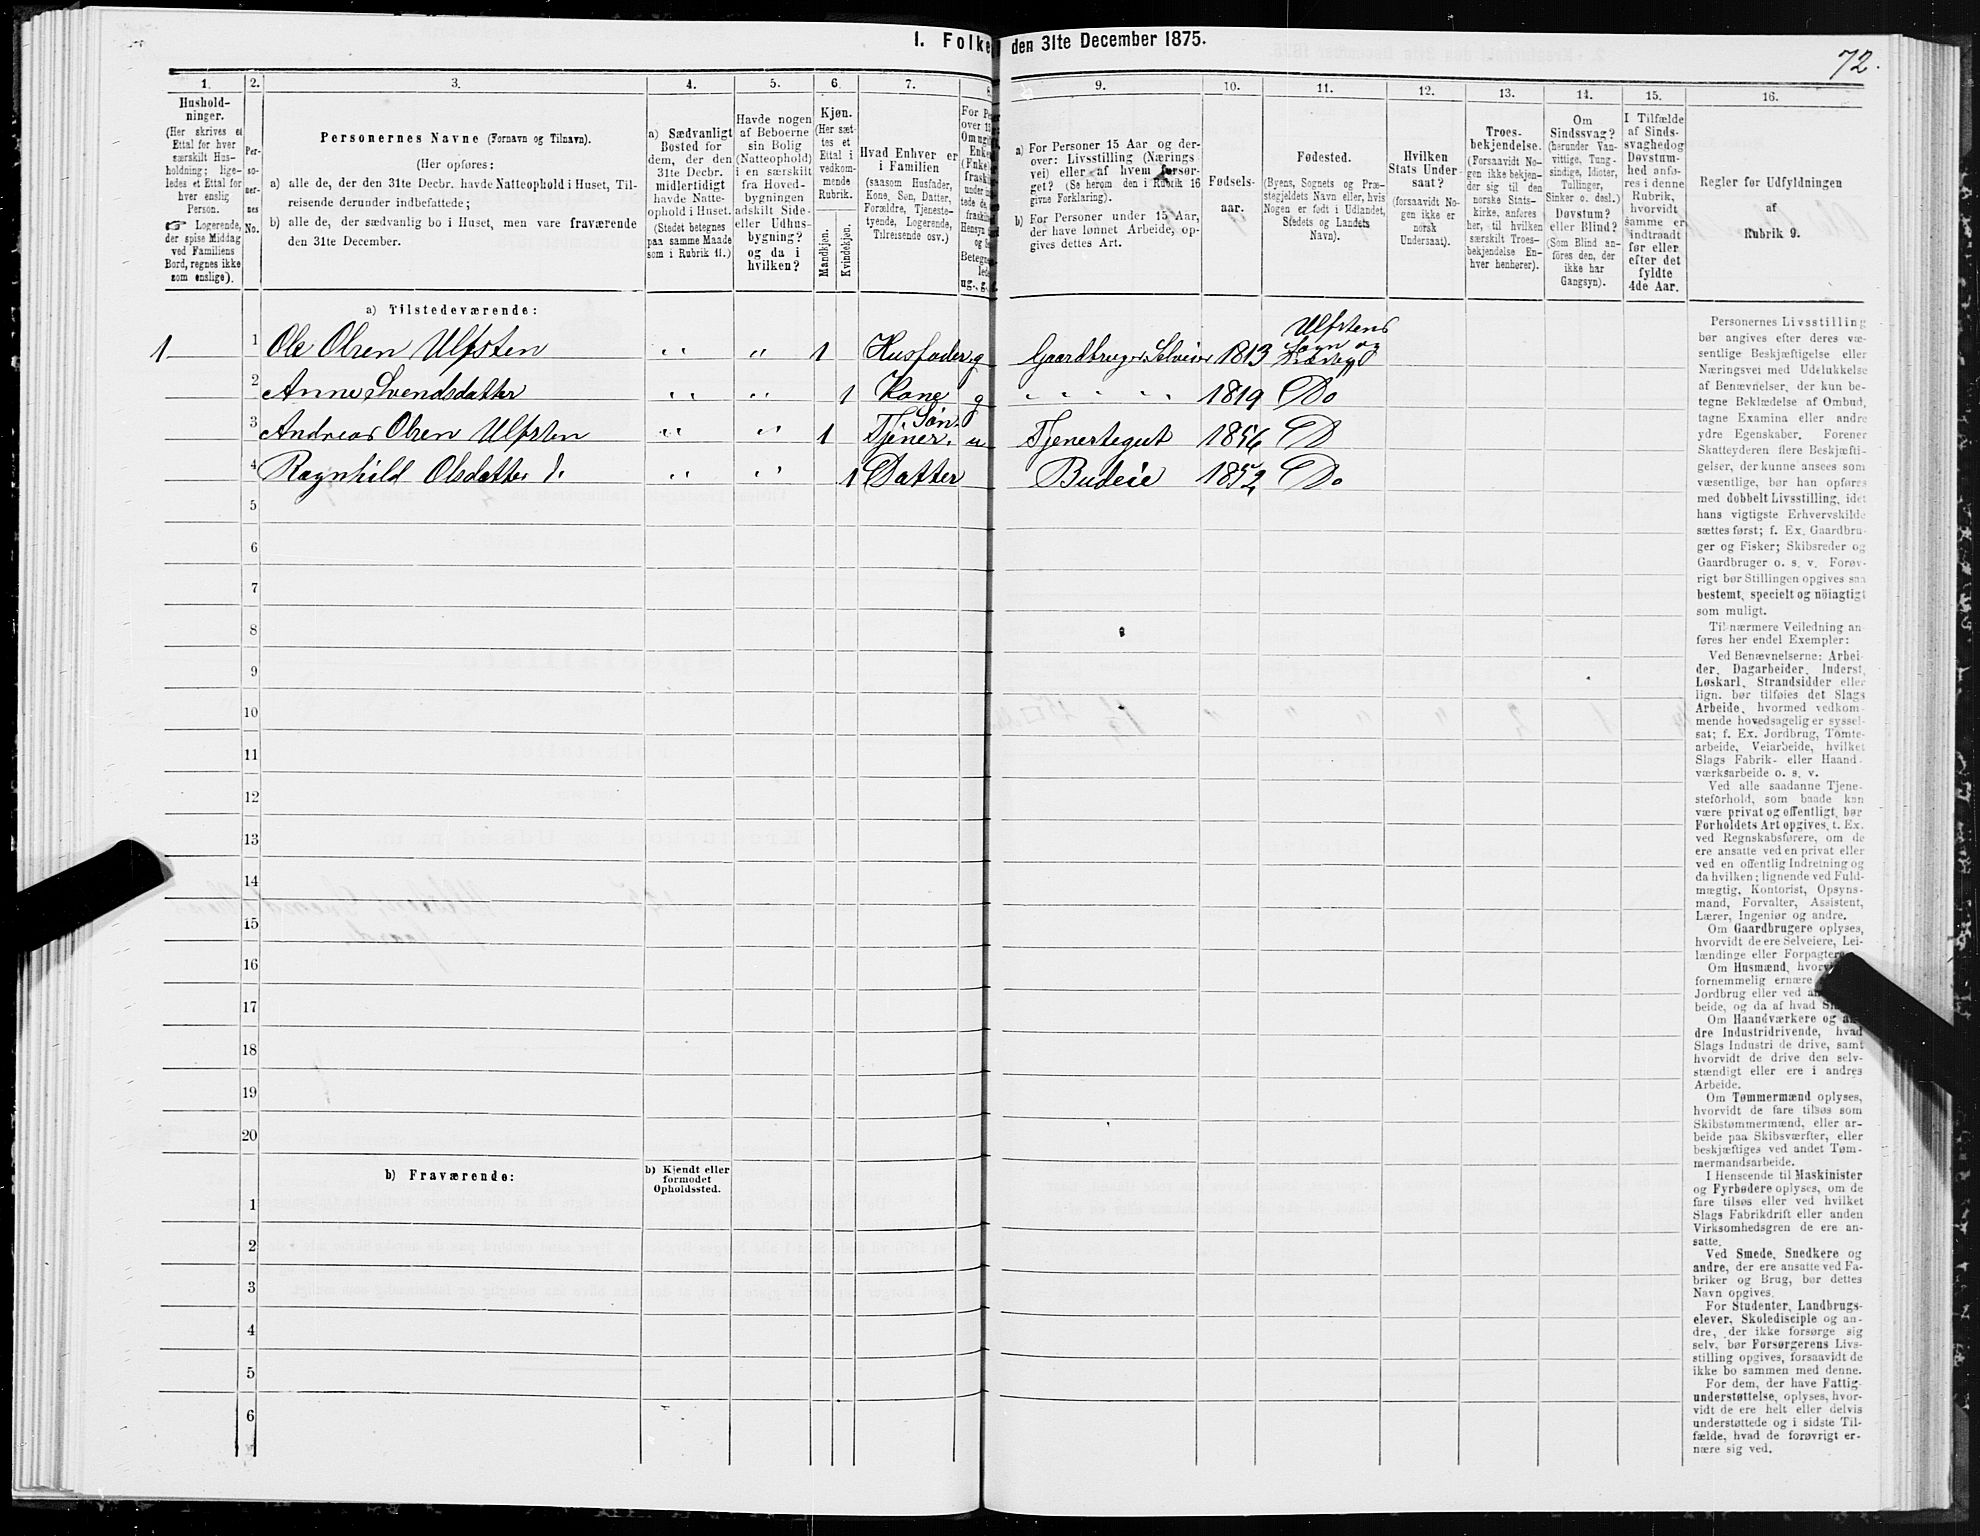 I. Folke
den 31te December 1875.
72.
1.
Hushold-
ninger.
(Her skrives et
Ettal for hver
særskilt Hus-
holdning; lige-
ledes et Ettal for
hver enslig
Person.
Logerende,
der spise Middag
ved Familiens
Bord, regnes ikke
som enslige).
2.
Per-
so-
ner-
nes
No.
3.
Personernes Navne (Fornavn og Tilnavn).
(Her opføres:
a) alle de, der den 31te Decbr. havde Natteophold i Huset, Til-
reisende derunder indbefattede;
b) alle de, der sædvanlig bo i Huset, men vare fraværende
den 31te December.
4.
a) Sædvanligt
Bosted for
dem, der den
31te Decbr.
midlertidigt
havde Natte-
ophold i Huset.
(Stedet betegnes
paa samme Maade
som i Rubrik 11.)
5.
Havde nogen
af Beboerne
sin Bolig
(Natteophold)
i en særskilt
fra Hoved-
bygningen
adskilt Side-
eller Udhus-
bygning?
og da i
hvilken?
6.
Kjøn.
(Her sæt-
tes et
Ettal i
vedkom-
mende
Rubrik.
Mandkjøn.
Kvindekjøn.
7.
Hvad Enhver er
i Familien
(saasom Husfader,
Kone, Søn, Datter,
Forældre, Tjeneste-
tyende, Logerende,
Tilreisende osv.)
8.
For Pe
over 1
Om ug
Enke
(Enke
frask
under
tede
fraski
Hensyn
og S
Betegn
led
ug., g.,
9.
a) For Personer 15 Aar og der-
over: Livsstilling (Nærings
vei) eller af hvem forsør-
get? (Se herom den i Rubrik 16
givne Forklaring).
b) For Personer under 15 Aar,
der have lønnet Arbeide, op-
gives dettes Art.
10.
Fødsels-
aar.
11.
Fødested.
(Byens, Sognets og Præ-
stegjeldets Navn eller, hvis
Nogen er født i Udlandet,
Stedets og Landets
Navn).
12.
Hvilken
Stats Under-
saat?
(forsaavidt No-
gen ikke er
norsk
Undersaat).
13.
Troes-
bekjendelse.
(Forsaavidt No-
gen ikke bekjen-
der sig til den
norske Stats-
kirke, anføres
her, til hvilken
særskilt Troes-
bekjendelse En-
hver henhører).
14.
Om
Sindssvag?
(herunder Van-
vittige, Tung-
sindige, Idioter,
Tullinger,
Sinker o. desl.)
Døvstum?
eller Blind?
(Som Blind an-
føres den, der
ikke har
Gangsyn).
15.
I Tilfælde
af Sinds-
svaghedog
Døvstum-
hed anfø-
res i denne
Rubrik,
hvorvidt
samme er
indtraadt
før eller
efter det
fyldte
4de Aar.
16.
Regler for Udfyldningen
af
Rubrik 9.
a) Tilstedeværende:
1 1 Ole Olsen Ulfsten " " 1 Husfader g Gaardbruger Selveier 1813 Ulfstens Sogn og
2 Anne Svendsdatter " " 1 Kone g " " " " " 1819 Do
3 Andreas Olsen Ulfsten " " 1 Søn. Tjener. u Tjenestegut 1856 D
4 Ragnhild Olsdatter " " 1 Datter Budeie 1852 Do
5
6
7
8
9
10
11
12
13
14
15
16
17
18
19
20
b) Fraværende:
b) Kjendt eller
formodet
Opholdssted.
1
2
3
4
5
6
Personernes Livsstilling
bør angives efter deres væ-
sentlige Beskjæftigelse eller
Næringsvei med Udelukkelse
af Benævnelser, der kun be-
tegne Beklædelse af Ombud,
tagne Examina eller andre
ydre Egenskaber. Forener
Skatteyderen flere Beskjæfti-
gelser, der kunne ansees som
væsentlige, bør han opføres
med dobbelt Livsstilling, idet
hans vigtigste Erhvervskilde
sættes først; f. Ex. Gaardbru-
ger og Fisker; Skibsreder og
Gaardbruger o. s. v. Forøv-
rigt bør Stillingen opgives saa
bestemt, specielt og nöiagtigt
som muligt.
Til nærmere Veiledning an-
føres her endel Exempler:
Ved Benævnelserne: Arbei-
der, Dagarbeider, Inderst,
Løskarl, Strandsidder eller
lign. bør tilføies det Slags
Arbeide, hvormed vedkom-
mende hovedsagelig er syssel-
sat; f. Ex. Jordbrug, Tømte-
arbeide, Veiarbeide, hvilket
Slags Fabrik- eller Haand-
værksarbeide o. s. v.
Ved alle saadanne Tjene-
steforhold, som baade kan
være privat og offentligt, bør
Forholdets Art opgives, t. Ex.
ved Regnskabsførere, om de
ere ansatte ved en privat eller
ved en offentlig Indretning og
da hvilken; lignende ved Fuld-
mægtig, Kontorist, Opsyns-
mand, Forvalter, Assistent,
Lærer, Ingeniør og andre.
Om Gaardbrugere oplyses,
hvorvidt de ere Selveiere, Lei-
lændinge eller Forpagtere.
Om Husmænd, hvorvi
fornemmelig ernære
Jordbrug eller ved a
beide, og da af hvad Sl
Om Haandværkere og an-
dre Industridrivende, hvad
Slags Industri de drive, samt
hvorvidt de drive den selv-
stændigt eller ere i andres
Arbeide.
Om Tømmermænd oplyses,
hvorvidt de fare tilsøs som
Skibstømmermænd, eller ar-
beide paa Skibsværfter, eller
beskjæftiges ved andet Tøm-
mermandsarbeide.
I Henseende til Maskinister
og Fyrbødere oplyses, om de
fare tilsøs eller ved hvilket
Slags Fabrikdrift eller anden
Virksomhedsgren de ere an-
satte.
Ved Smede, Snedkere og
andre, der ere ansatte ved Fa-
briker og Brug, bør dettes
Navn opgives.
For Studenter, Landbrugs-
elever, Skoledisciple og an-
dre, der ikke forsørge sig
selv, bør Forsørgerens Livs-
stilling opgives, forsaavidt de
ikke bo sammen med denne.
For dem, der have Fattig-
understøttelse, oplyses, hvor-
vidt de ere helt eller delvis
understøttede og i sidste Til-
fælde, hvad de forøvrigt er-
nære sig ved.